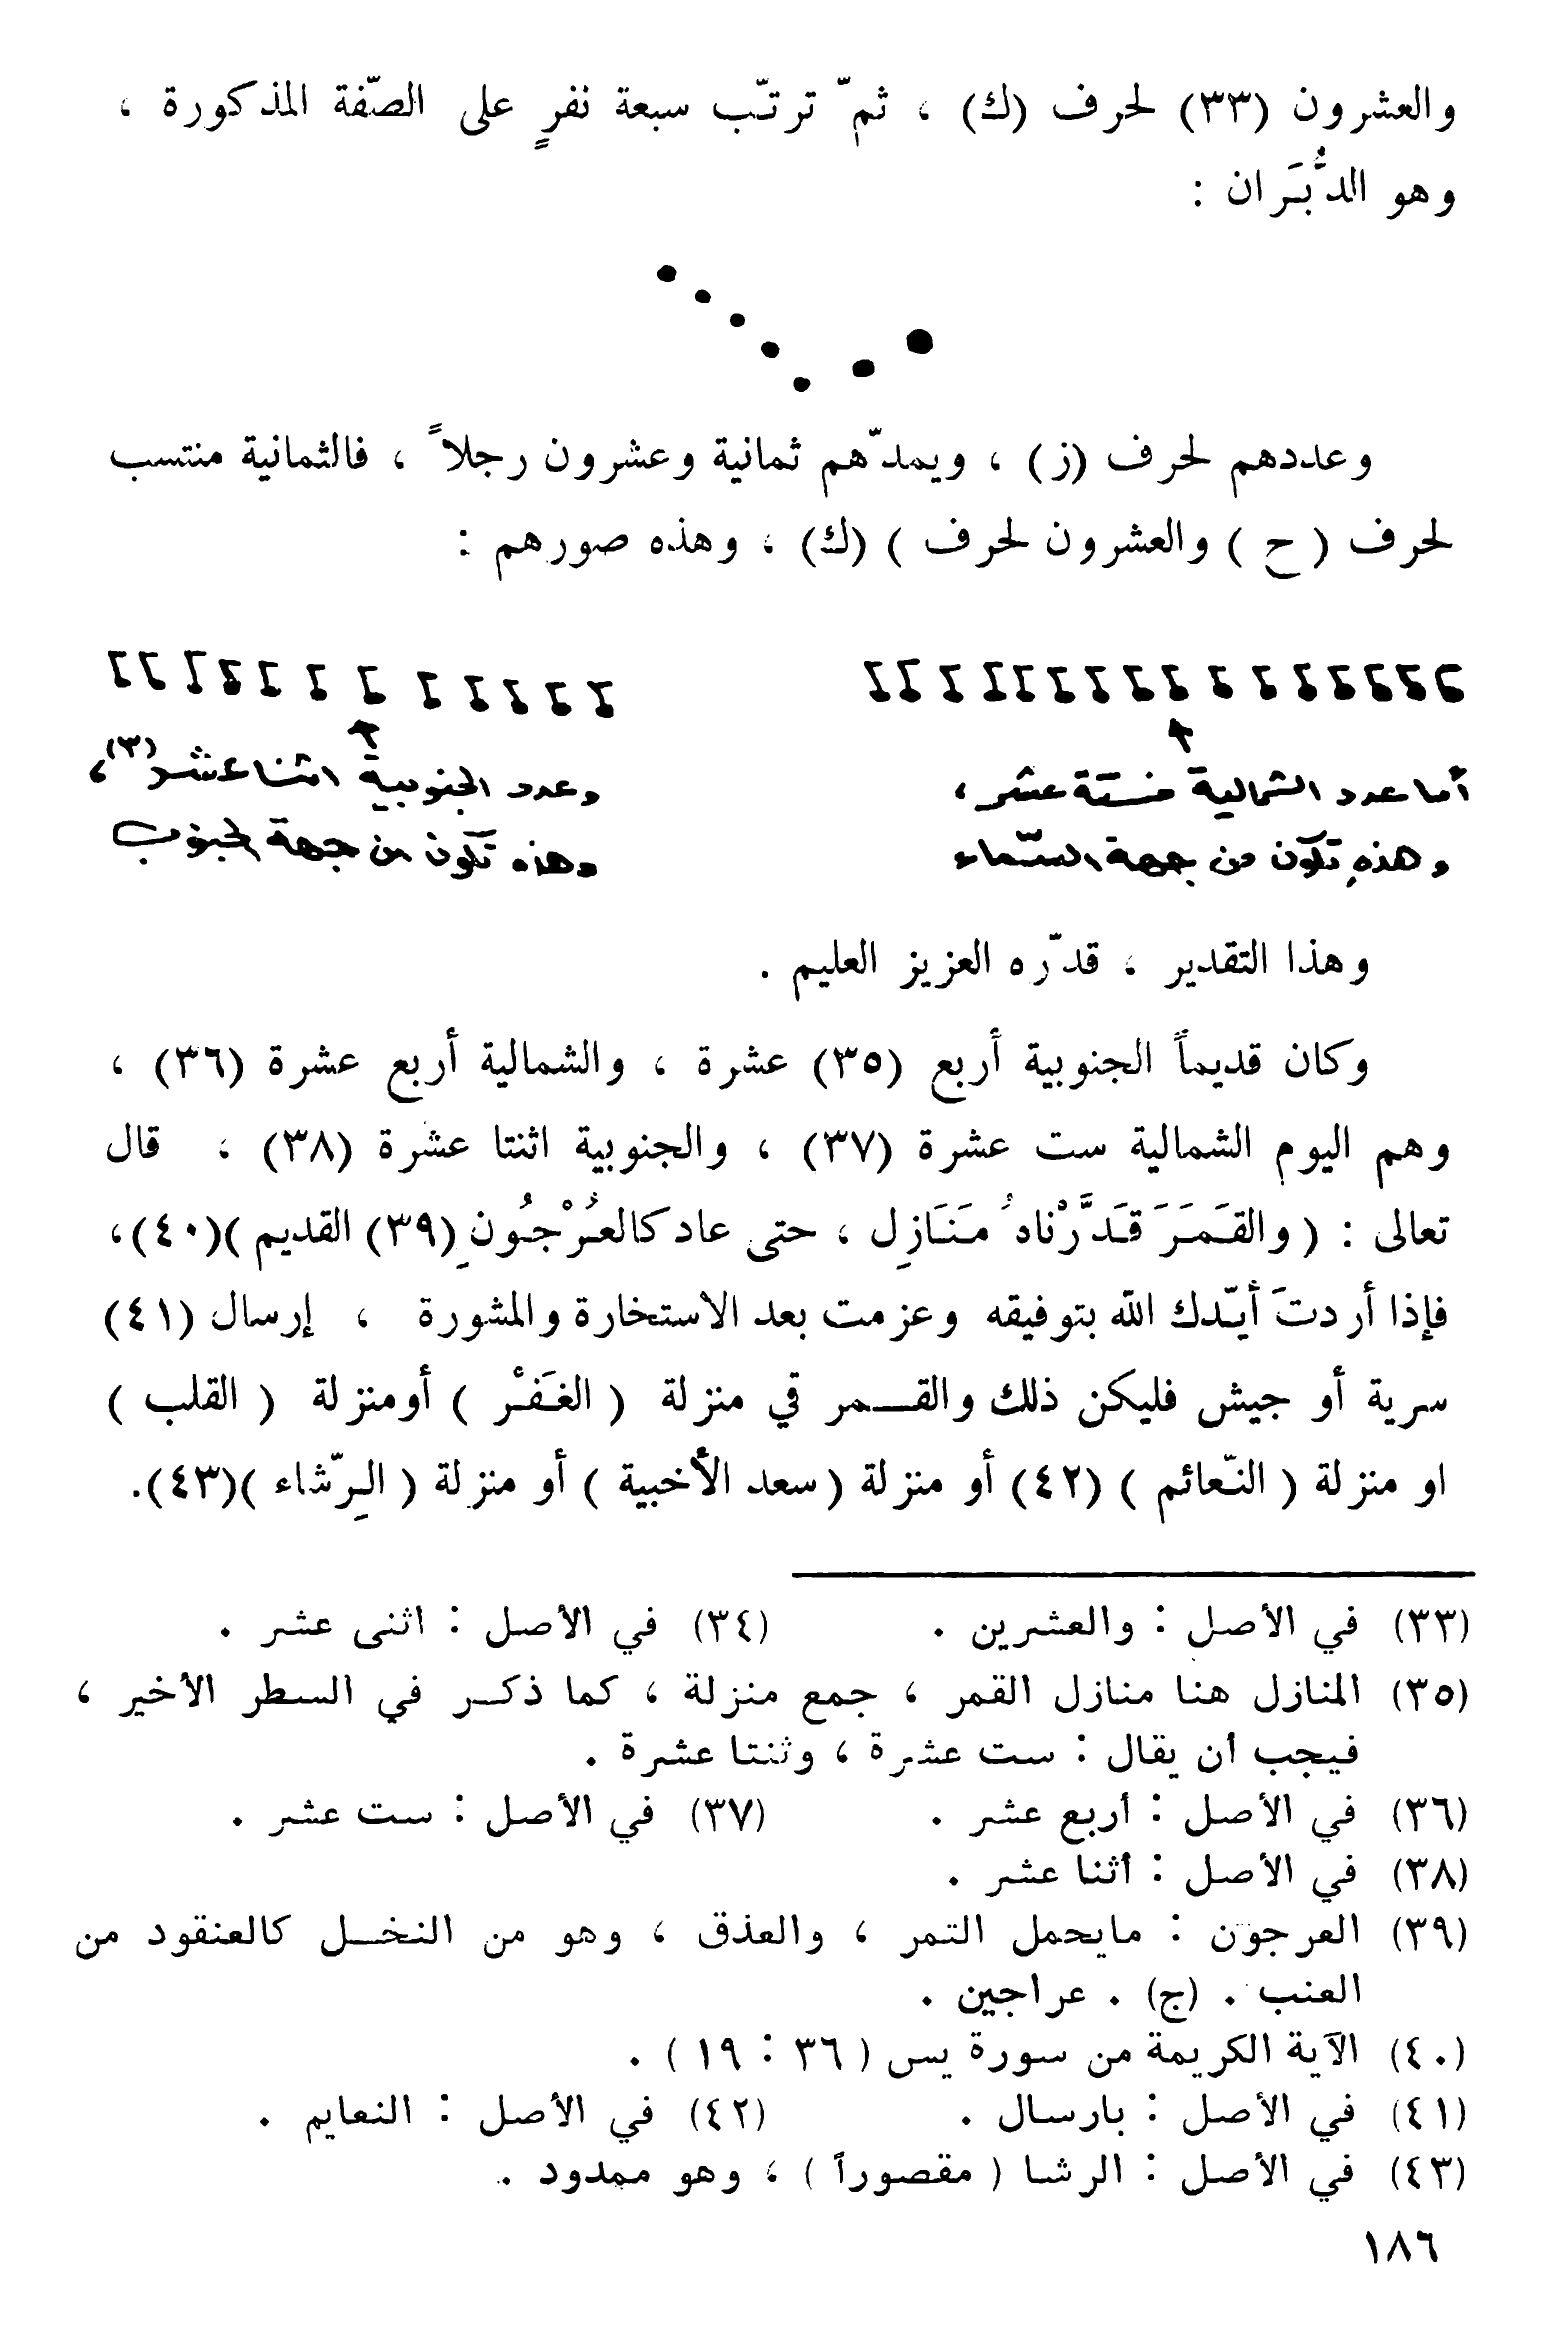 والعشرون (٣٣) لحرف (ك) ، ثمّ ترتّب سبعة نفرٍ على الصّفة المذكورة ،
وهو الدُّبَران :
وعددهم لحرف (ز) ، ويمدّهم ثمانية وعشرون رجلاً ، فالثمانية منتسب
لحرف ( ح ) والعشرون لحرف ) (ك) ، وهذه صورهم :
أما عدد الشمالية ستة عشر ،
وهذه تكون من جهة السّماء
وعدد الجنوبية اثنا عشر (٣) ،
وهذه تكون من جهة الجنوب
وهذا التقدير ، قدّره العزيز العليم .
وكان قديماً الجنوبية أربع (٣٥) عشرة ، والشمالية أربع عشرة (٣٦) ،
وهم اليوم الشمالية ست عشرة (٣٧) ، والجنوبية اثنتا عشرة (٣٨) ، قال
تعالى : ( والقَمَرَ قَدَّرْناهُ مَنَازِل ، حتى عاد كالعُرْجُونِ (٣٩) القديم )(٤٠)،
فإذا أردتَ أيّدك الله بتوفيقه وعزمت بعد الاستخارة والمشورة ، إرسال (٤١)
سرية أو جيش فليكن ذلك والقـمر في منزلة ( الغَفْر ) أومنزلة ( القلب )
او منزلة ( النّعائم ) (٤٢) أو منزلة ( سعد الأخبية ) أو منزلة ( الرِّشاء )(٤٣).
(٣٣) في الأصل : والعشرين . (٣٤) في الأصل : اثنى عشر .
(٣٥) المنازل هنا منازل القمر ، جمع منزلة ، كما ذكـر في السطر الأخير ،
فيجب أن يقال : ست عشرة ، وثنتا عشرة .
(٣٦) في الأصل : أربع عشر . (٣٧) في الأصل : ست عشر .
(٣٨) في الأصل : أثنا عشر .
(٣٩) العرجون : مايحمل التمر ، والعذق ، وهو من النخـل كالعنقود من
العنب . (ج) . عراجين .
(٤٠) الآية الكريمة من سورة يس ( ٣٦ : ١٩ ) .
(٤١) في الأصل : بارسال . (٤٢) في الأصل : النعايم .
(٤٣) في الأصل : الرشا ( مقصوراً ) ، وهو ممدود .
١٨٦